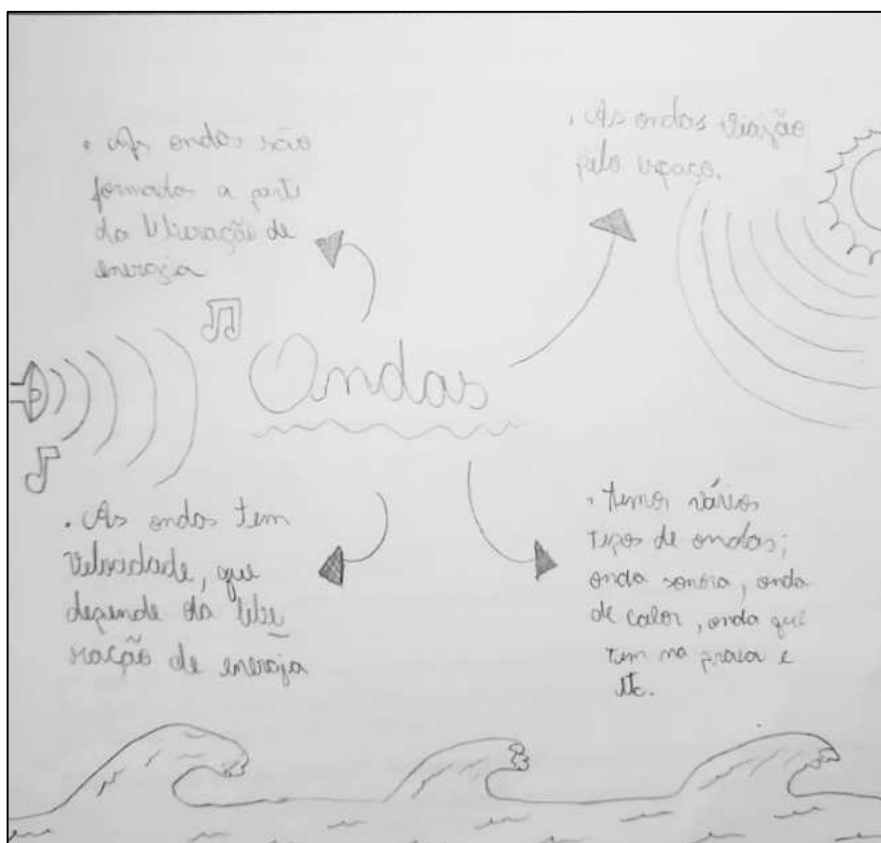 • As ondas são
formadas a parti
da liberação de
energia
• As ondas viazão
pelo espaço.
Ondas
• As ondas tem
velocidade, que
depende da libe_
ração de energia
• temos vários
tipos de ondas;
onda sonora, onda
de calor, onda que
tem na praia e
etc.